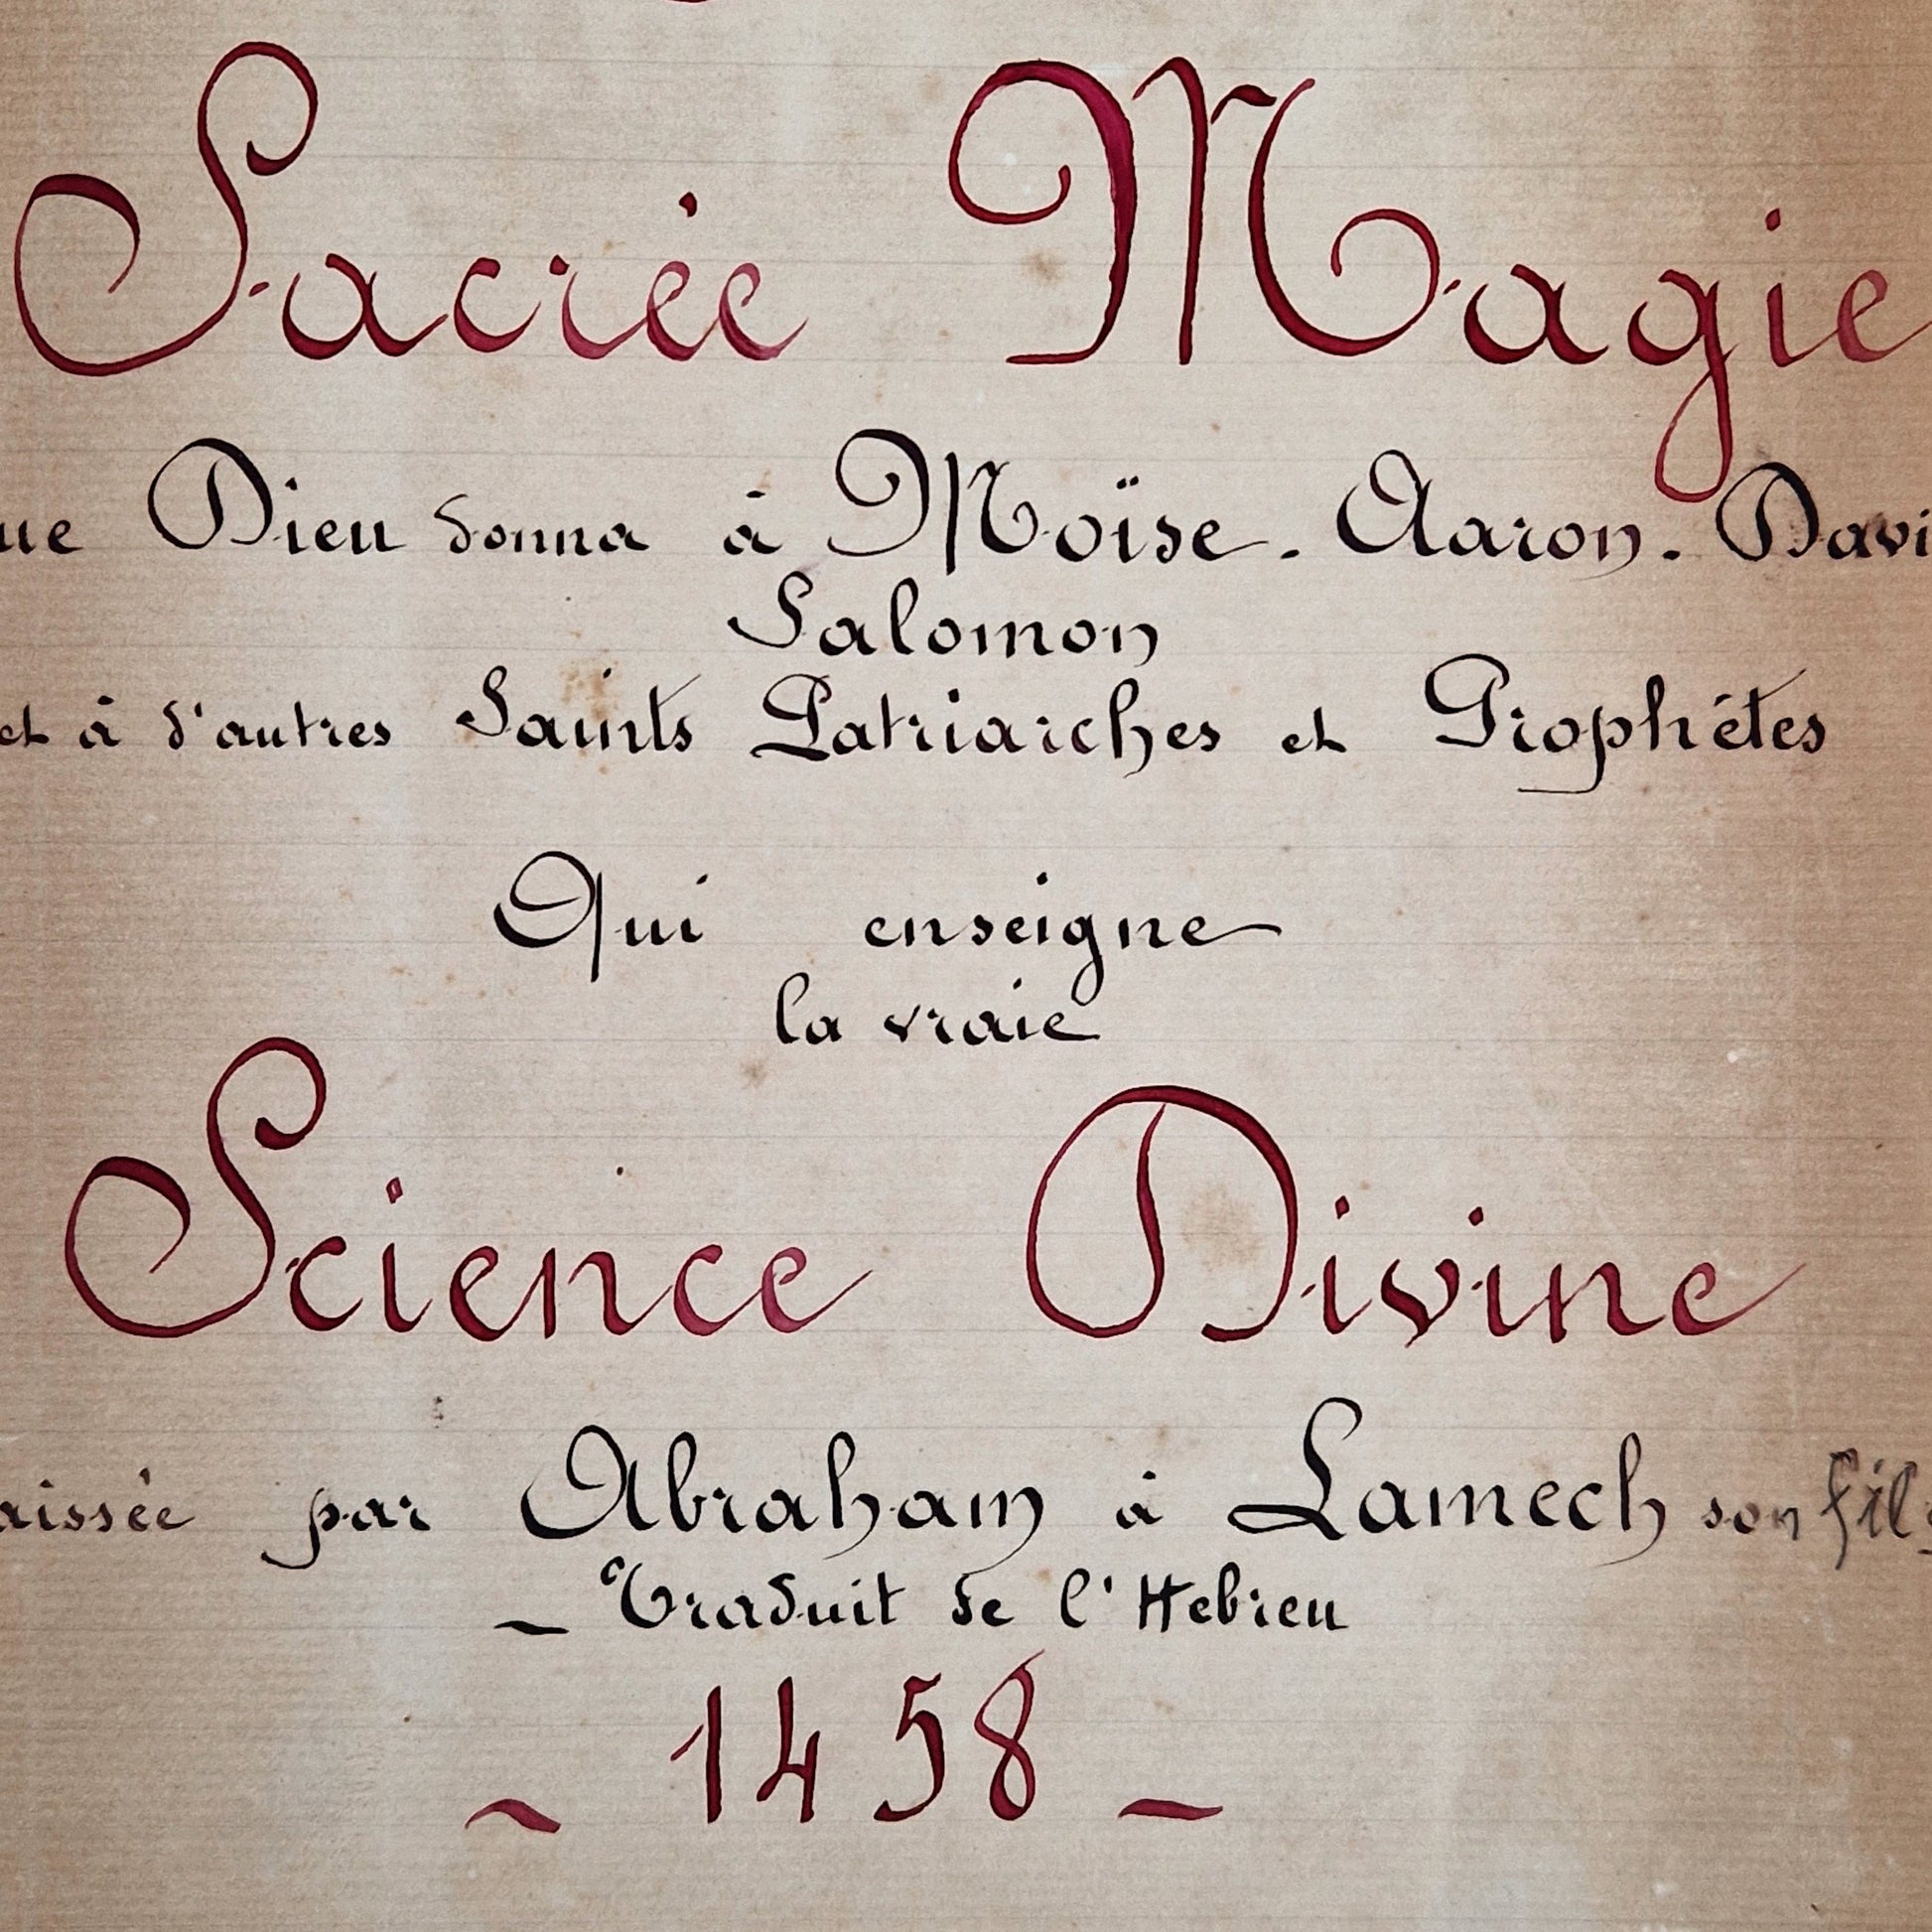 Sacrée Magie
ue Dieu donna à Moïse. Aaron. Davi
Salomon
et à d'autres Saints Patriarches et Prophétes
Qui enseigne
la vraie
Science Divine
aissée par Abraham à Lamech son fils
~ Traduit de l'Hebreu
~ 1458 ~